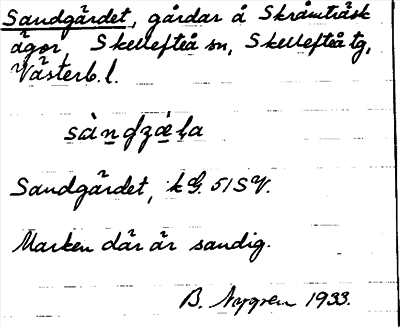 Sandgärdet, gårdar å Skråmträsk
ägor, Skellefteå sn, Skellefteå tg,
Västerb. l.
Sandgärdet, k G. 51 SV.
Marken där är sandig.
B. Nygren 1933.